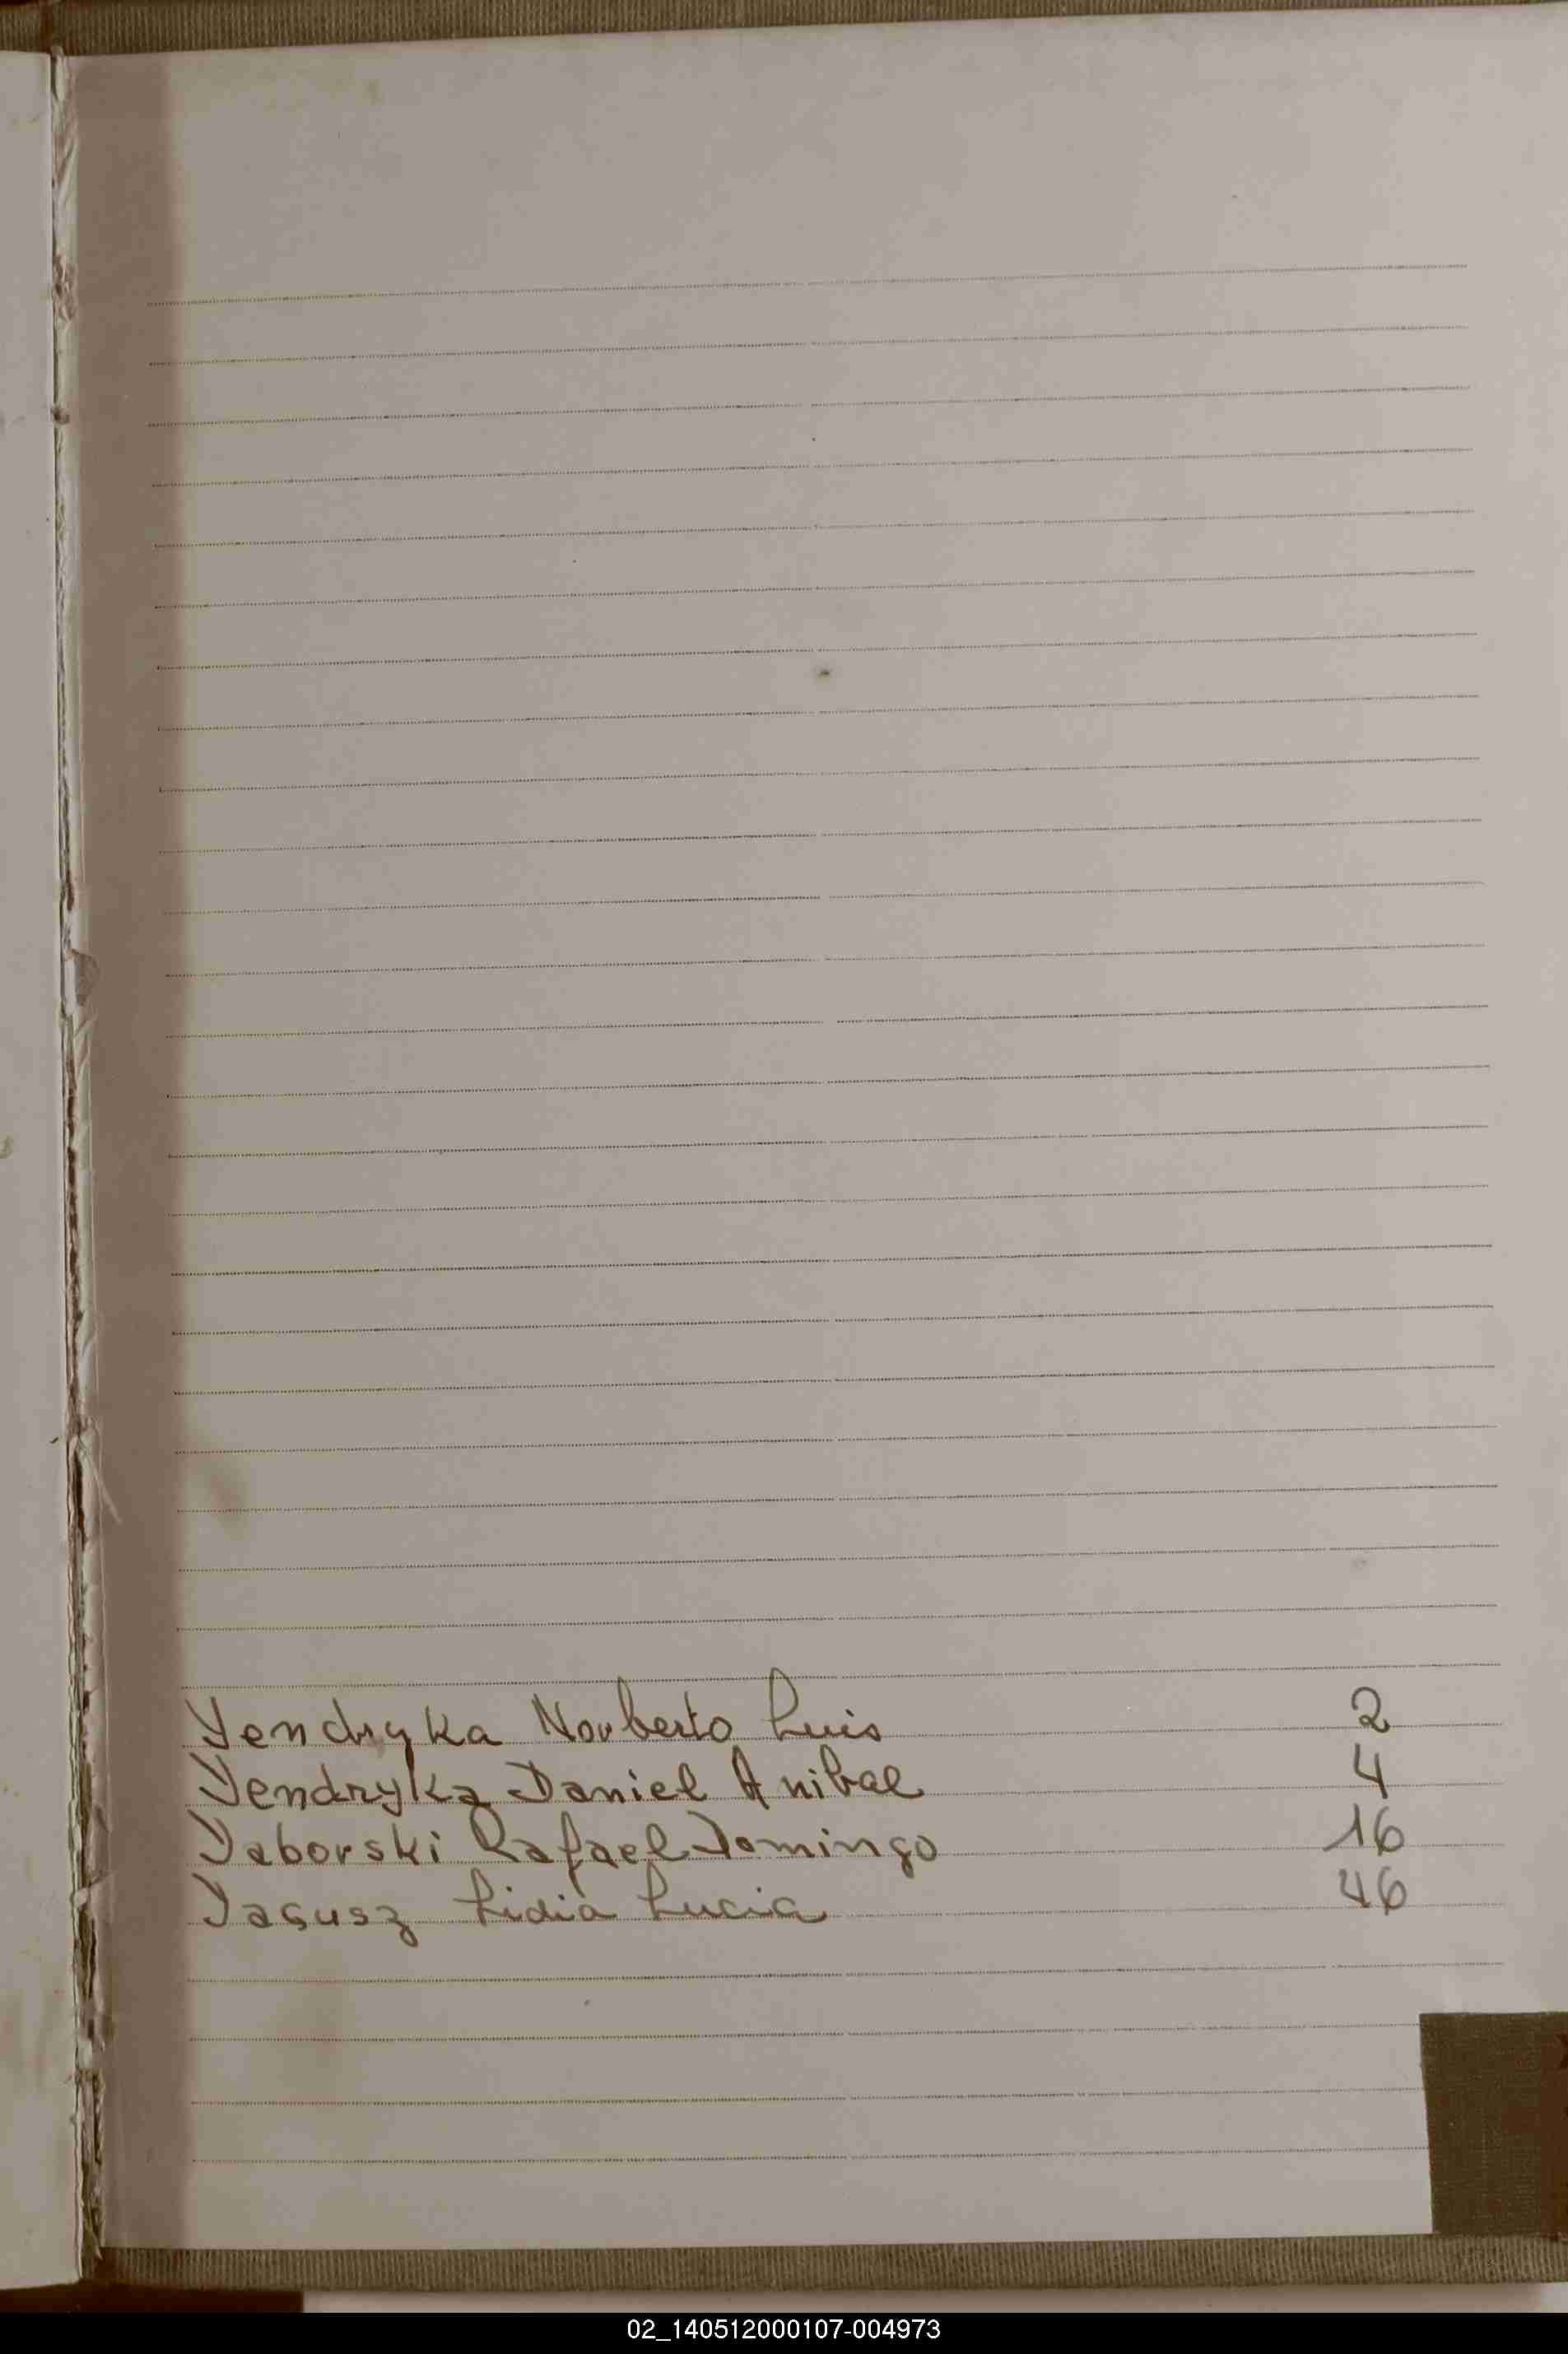 Yendryka Norberto Luis 2
Yendryka Daniel Anibal 4
Yaborski Rafael Domingo 16
Yagusz Lidia Lucia 46
02_140512000107-004973